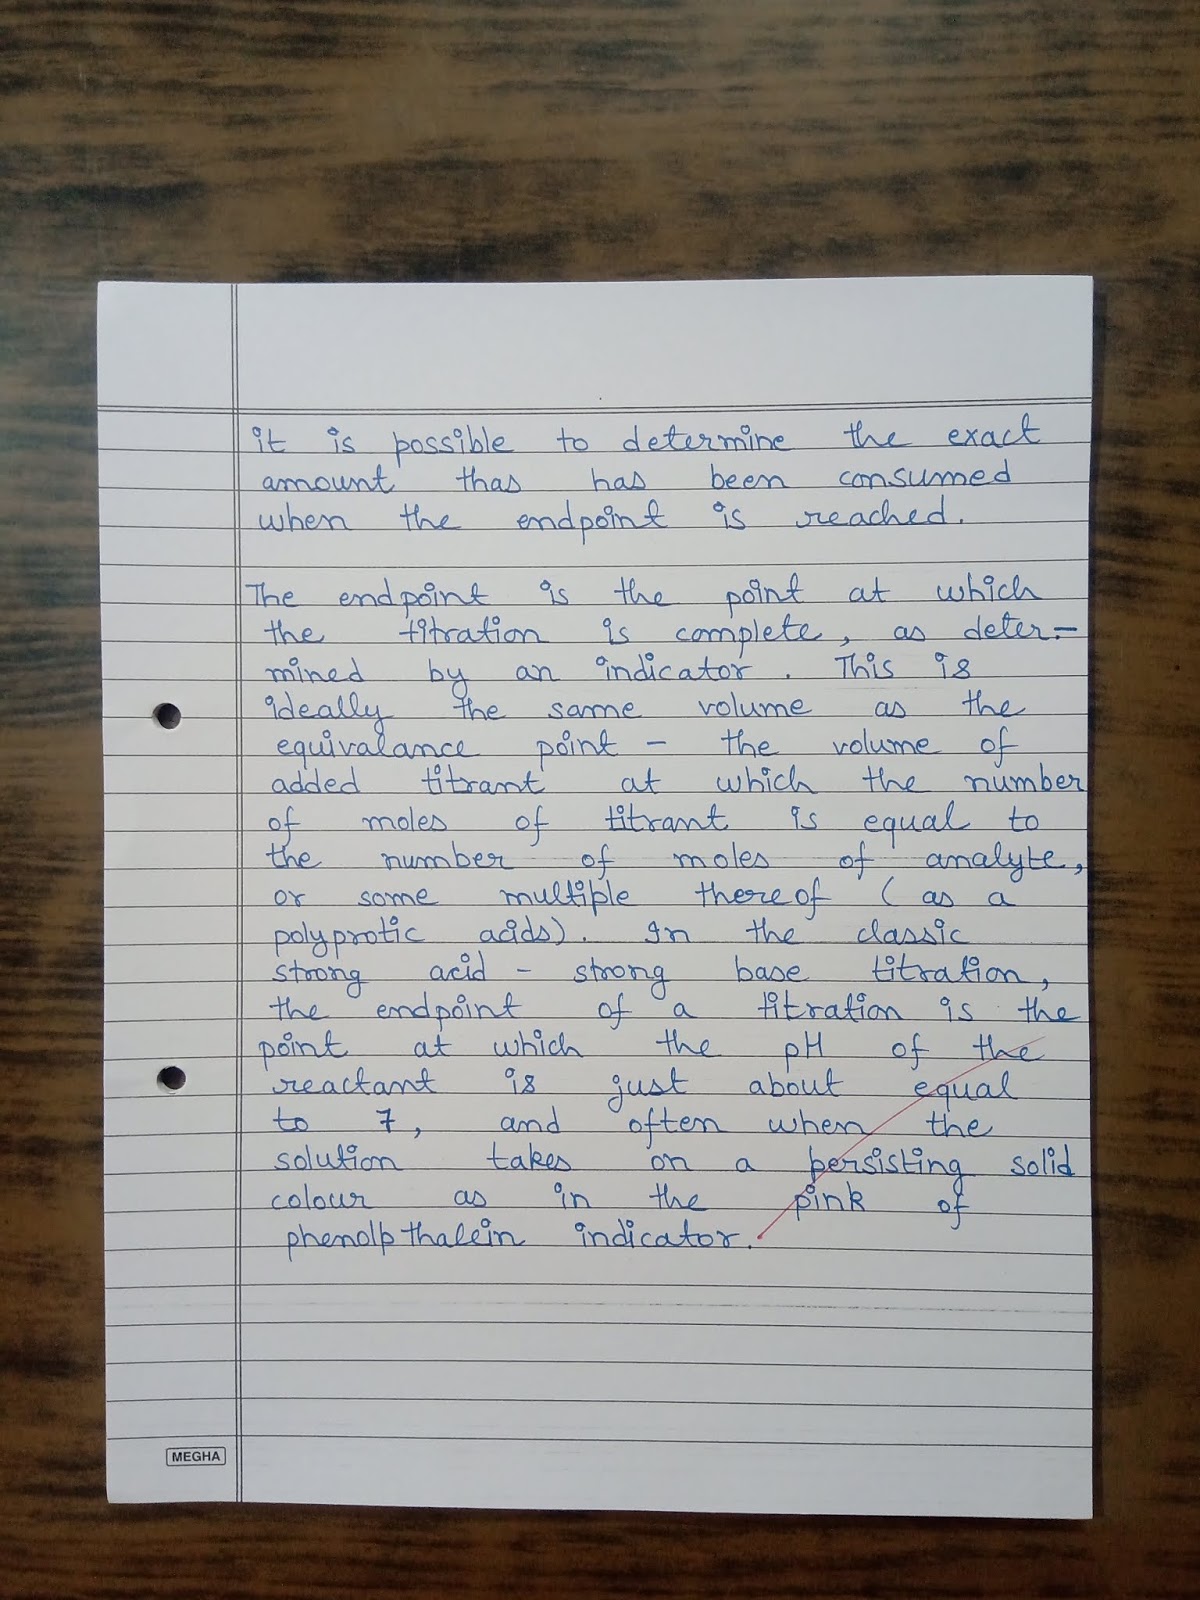 it is possible to determine the exact
amount thas has been consumed
when the endpoint is reached.
The endpoint is the point at which
the titration is complete, as deter-
mined by an indicator. This is
ideally the same volume as the
equivalance point - the volume of
added titrant at which the number
of moles of titrant is equal to
the number of moles of analyte,
or some multiple thereof (as a
polyprotic acids). In the classic
strong acid - strong base titration,
the endpoint of a titration is the
point at which the pH of the
reactant is just about equal
to 7, and often when the
solution takes on a persisting solid
colour as in the pink of
phenolpthalein indicator.
MEGHA